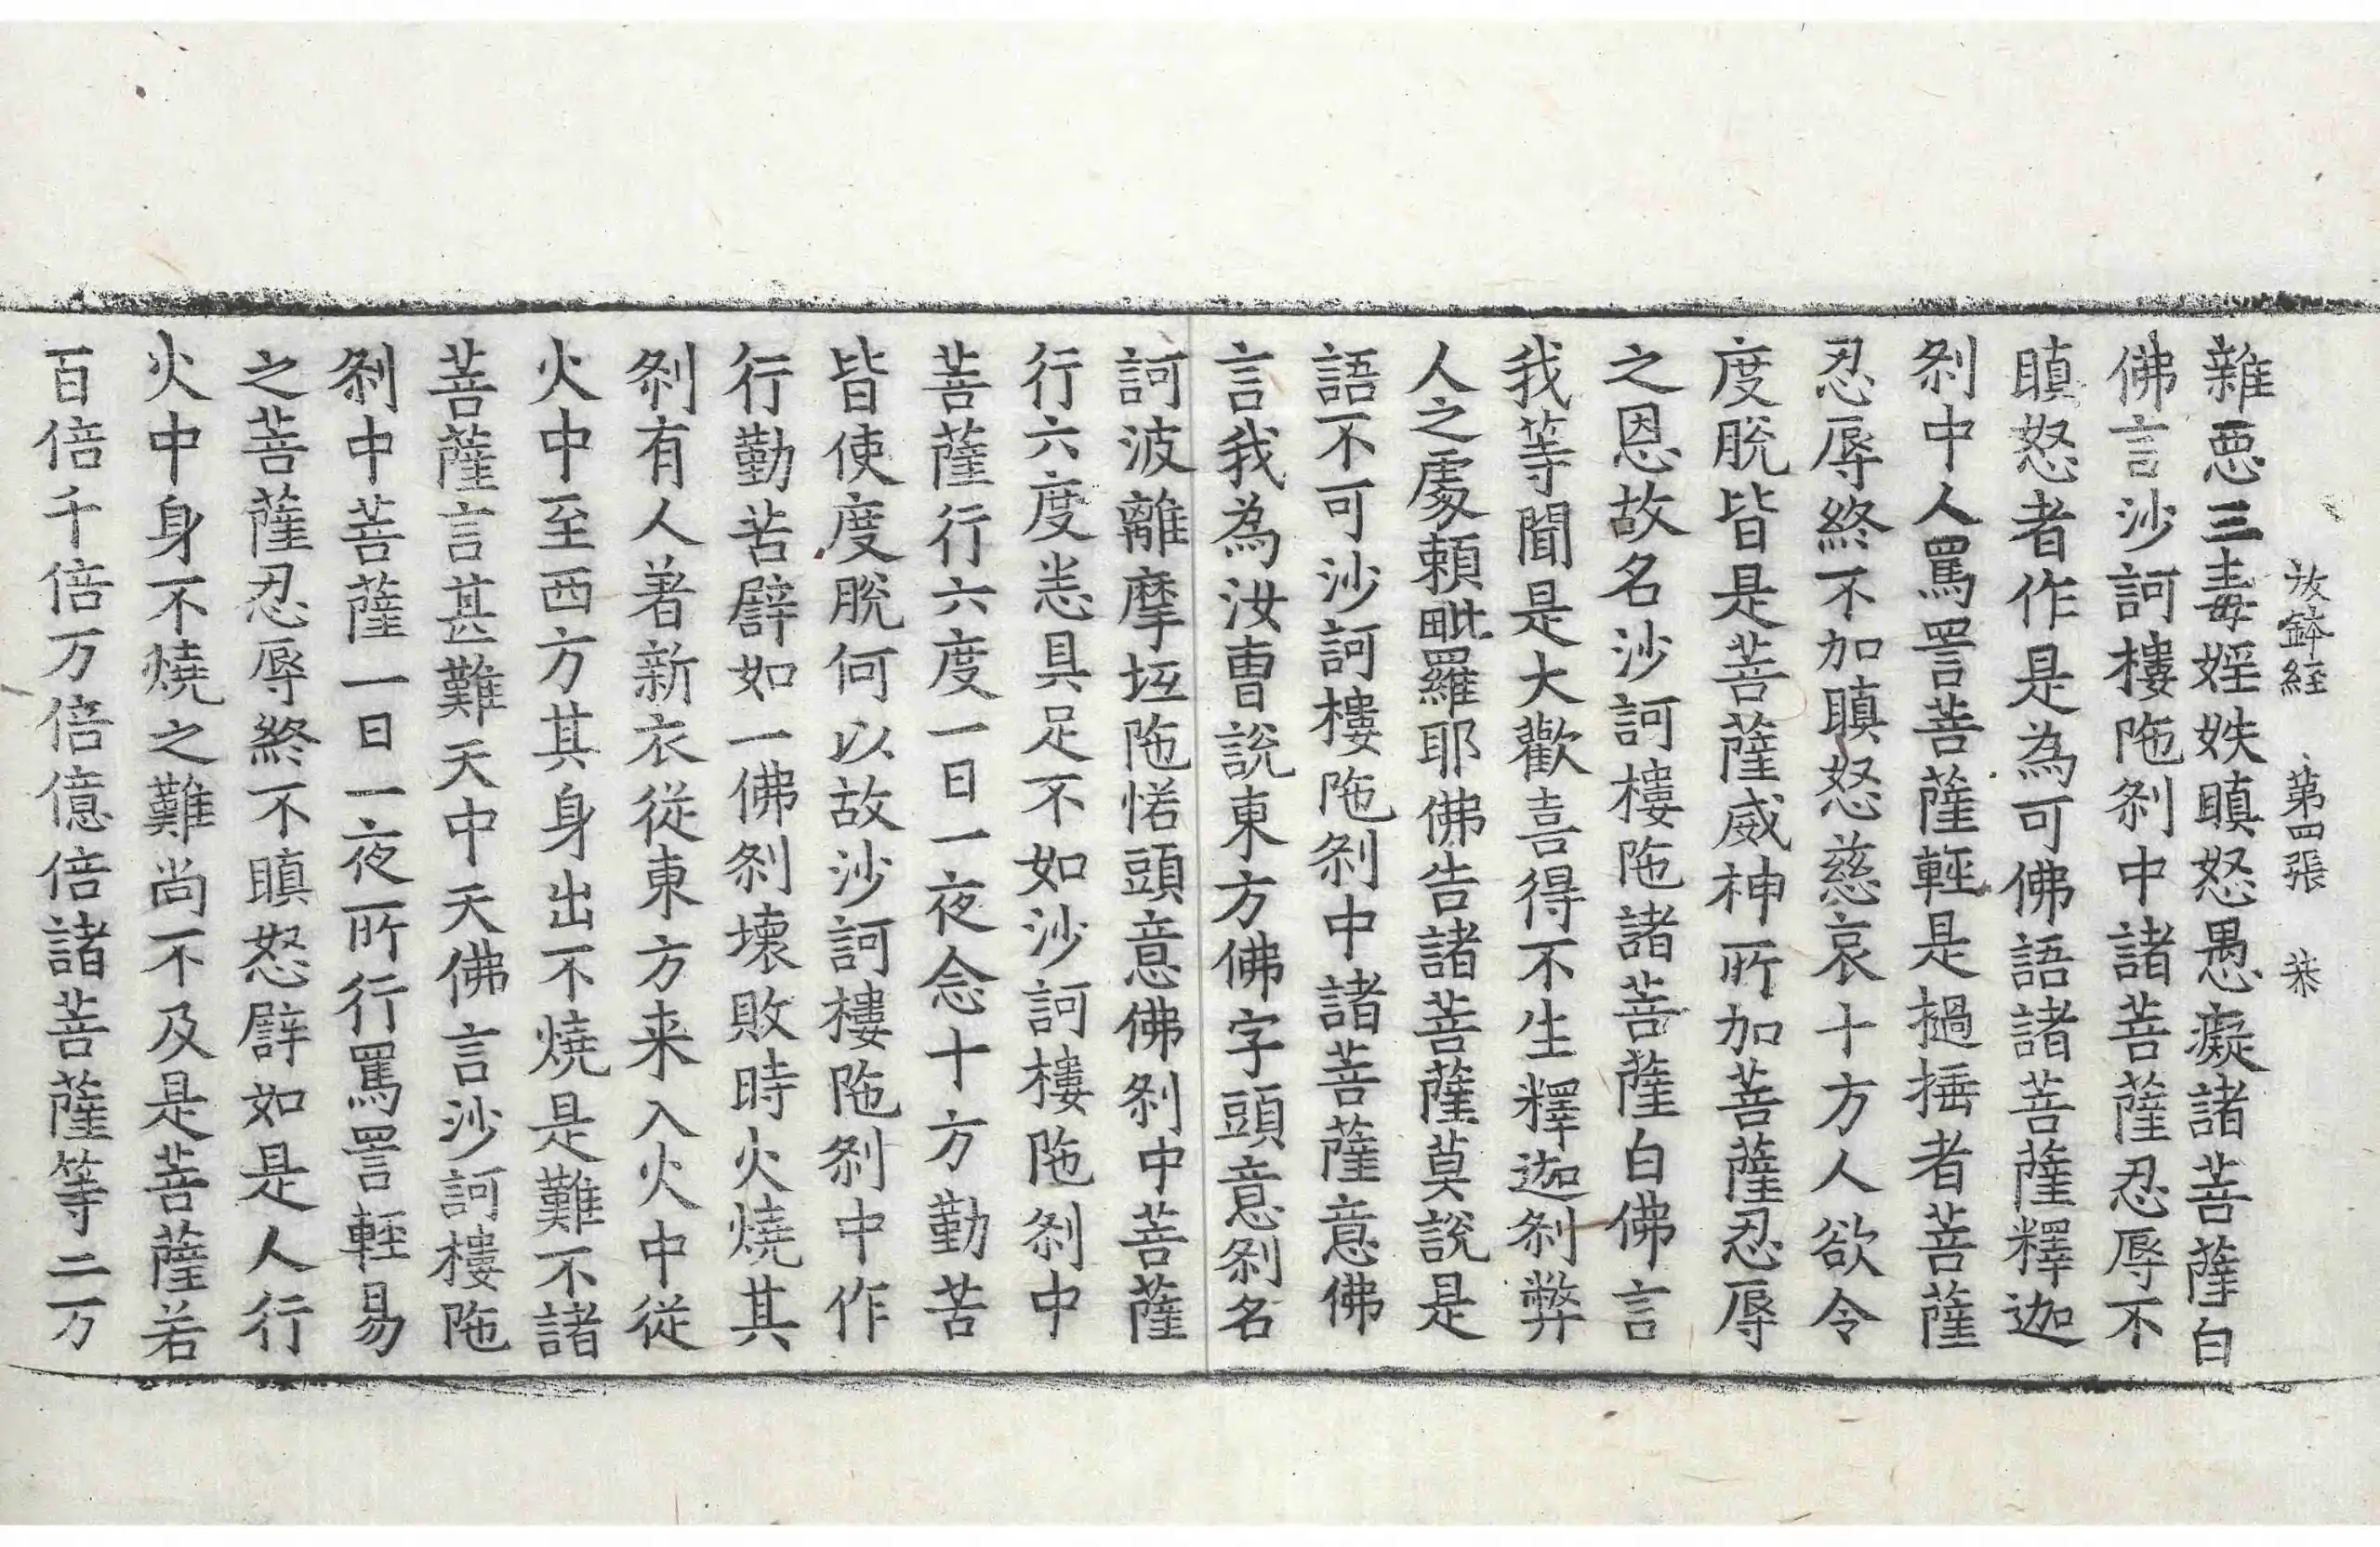 放鉢經 第四張 恭
雜惡三毒婬妷瞋怒愚癡諸菩薩白
佛言沙訶樓陁刹中諸菩薩忍辱不
瞋怒者作是為可佛語諸菩薩釋迦
刹中人罵詈菩薩輕是撾捶者菩薩
忍辱終不加瞋怒慈哀十方人欲令
度脫皆是菩薩威神所加菩薩忍辱
之恩故名沙訶樓陁諸菩薩白佛言
我等聞是大歡喜得不生釋迦刹弊
人之處賴毗羅耶佛告諸菩薩莫說是
語不可沙訶樓陁刹中諸菩薩意佛
言我為汝曹說東方佛字頭意刹名
訶波離摩坘陁惒頭意佛刹中菩薩
行六度恙具足不如沙訶樓陁刹中
菩薩行六度一日一夜念十方勤苦
皆使度脫何以故沙訶樓陁刹中作
行勤苦譬如一佛刹壞敗時火燒其
刹有人著新衣從東方来入火中從
火中至西方其身出不燒是難不諸
菩薩言甚難天中天佛言沙訶樓陁
刹中菩薩一日一夜所行罵詈輕易
之菩薩忍辱終不瞋怒譬如是人行
火中身不燒之難尚不及是菩薩若
百倍千倍万倍億倍諸菩薩等二万